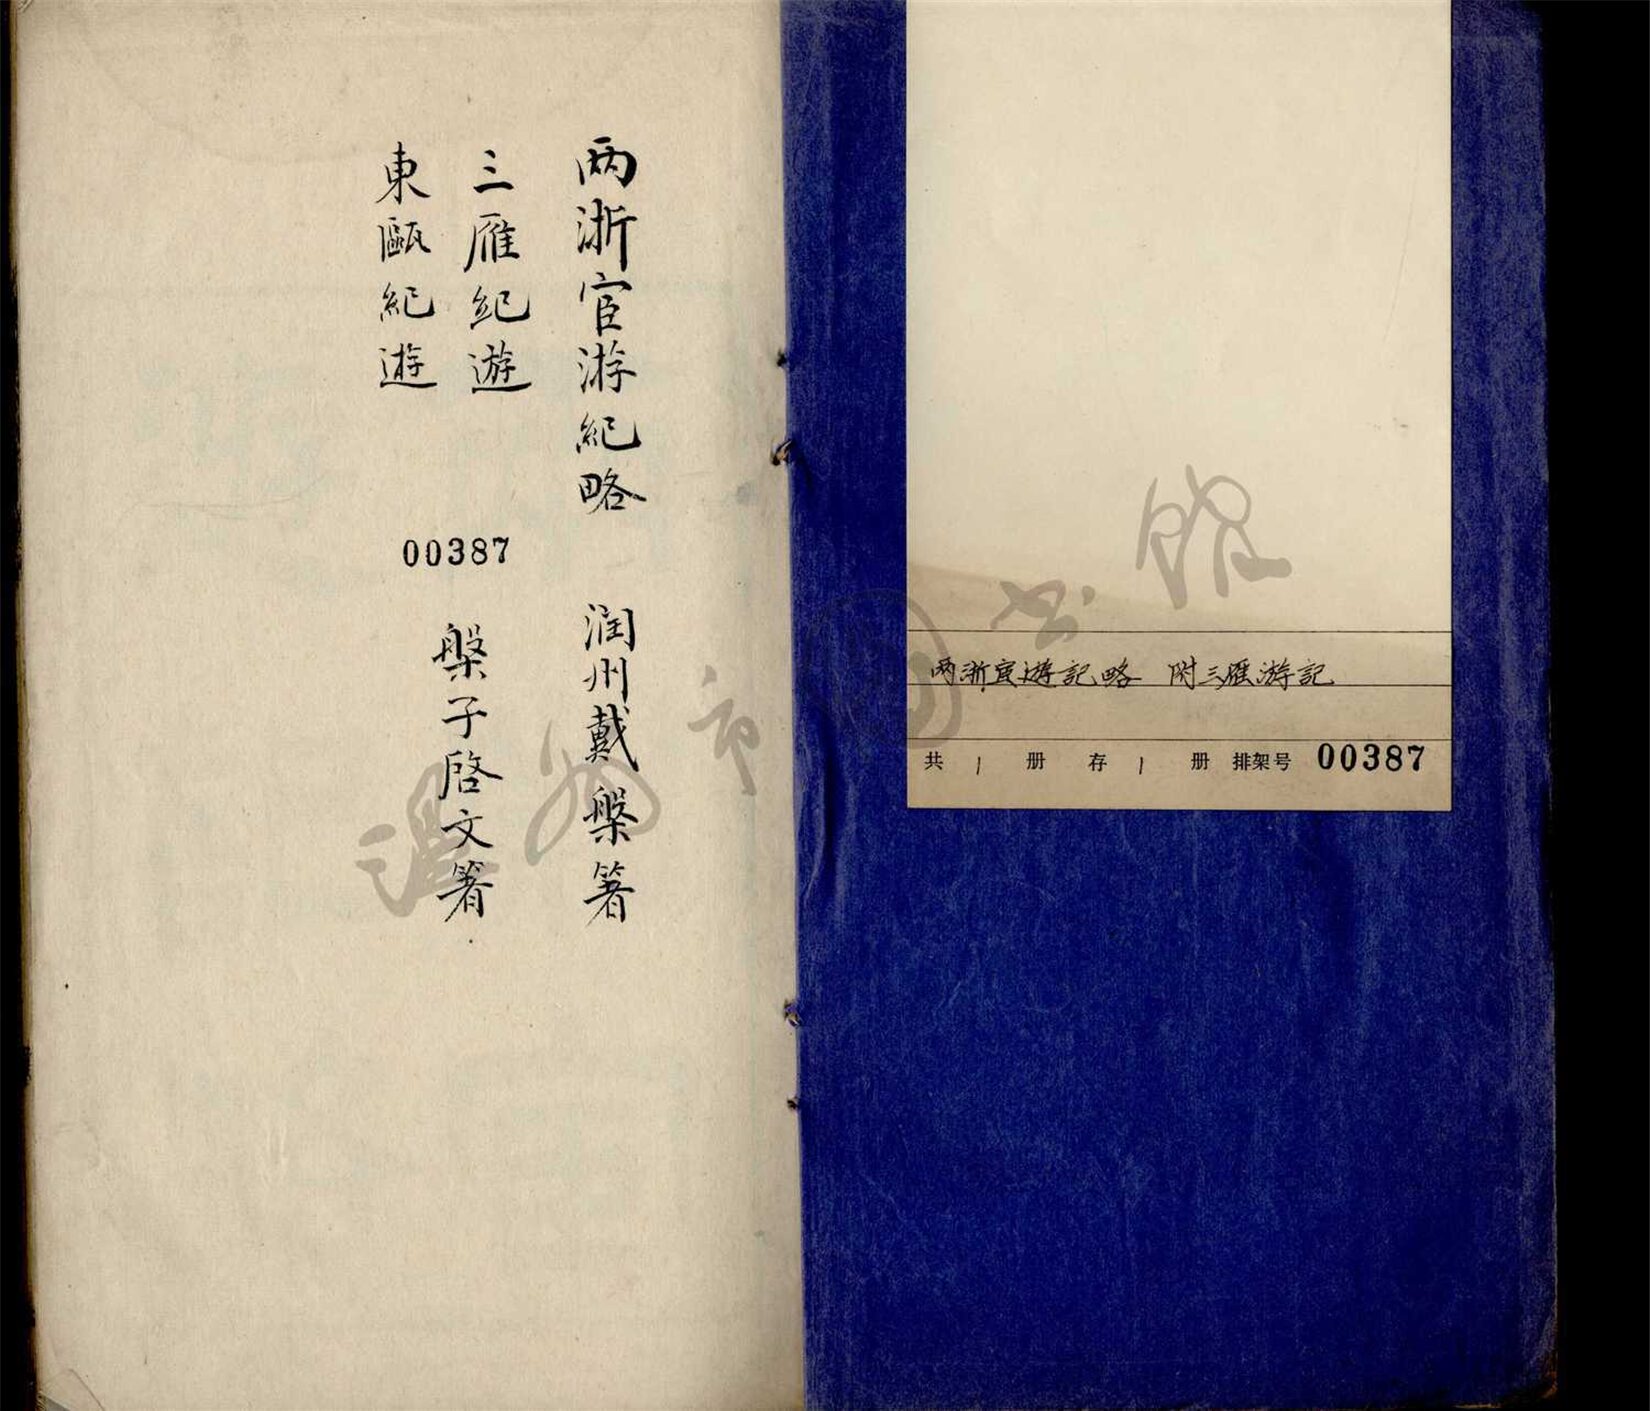 两浙宦游記略　附三雁游記
共 1 册 存 1 册 排架号 00387
两浙宦游紀略　润州戴槃著
三雁紀遊
東甌紀遊
槃子啓文著
00387
温州市圖书館